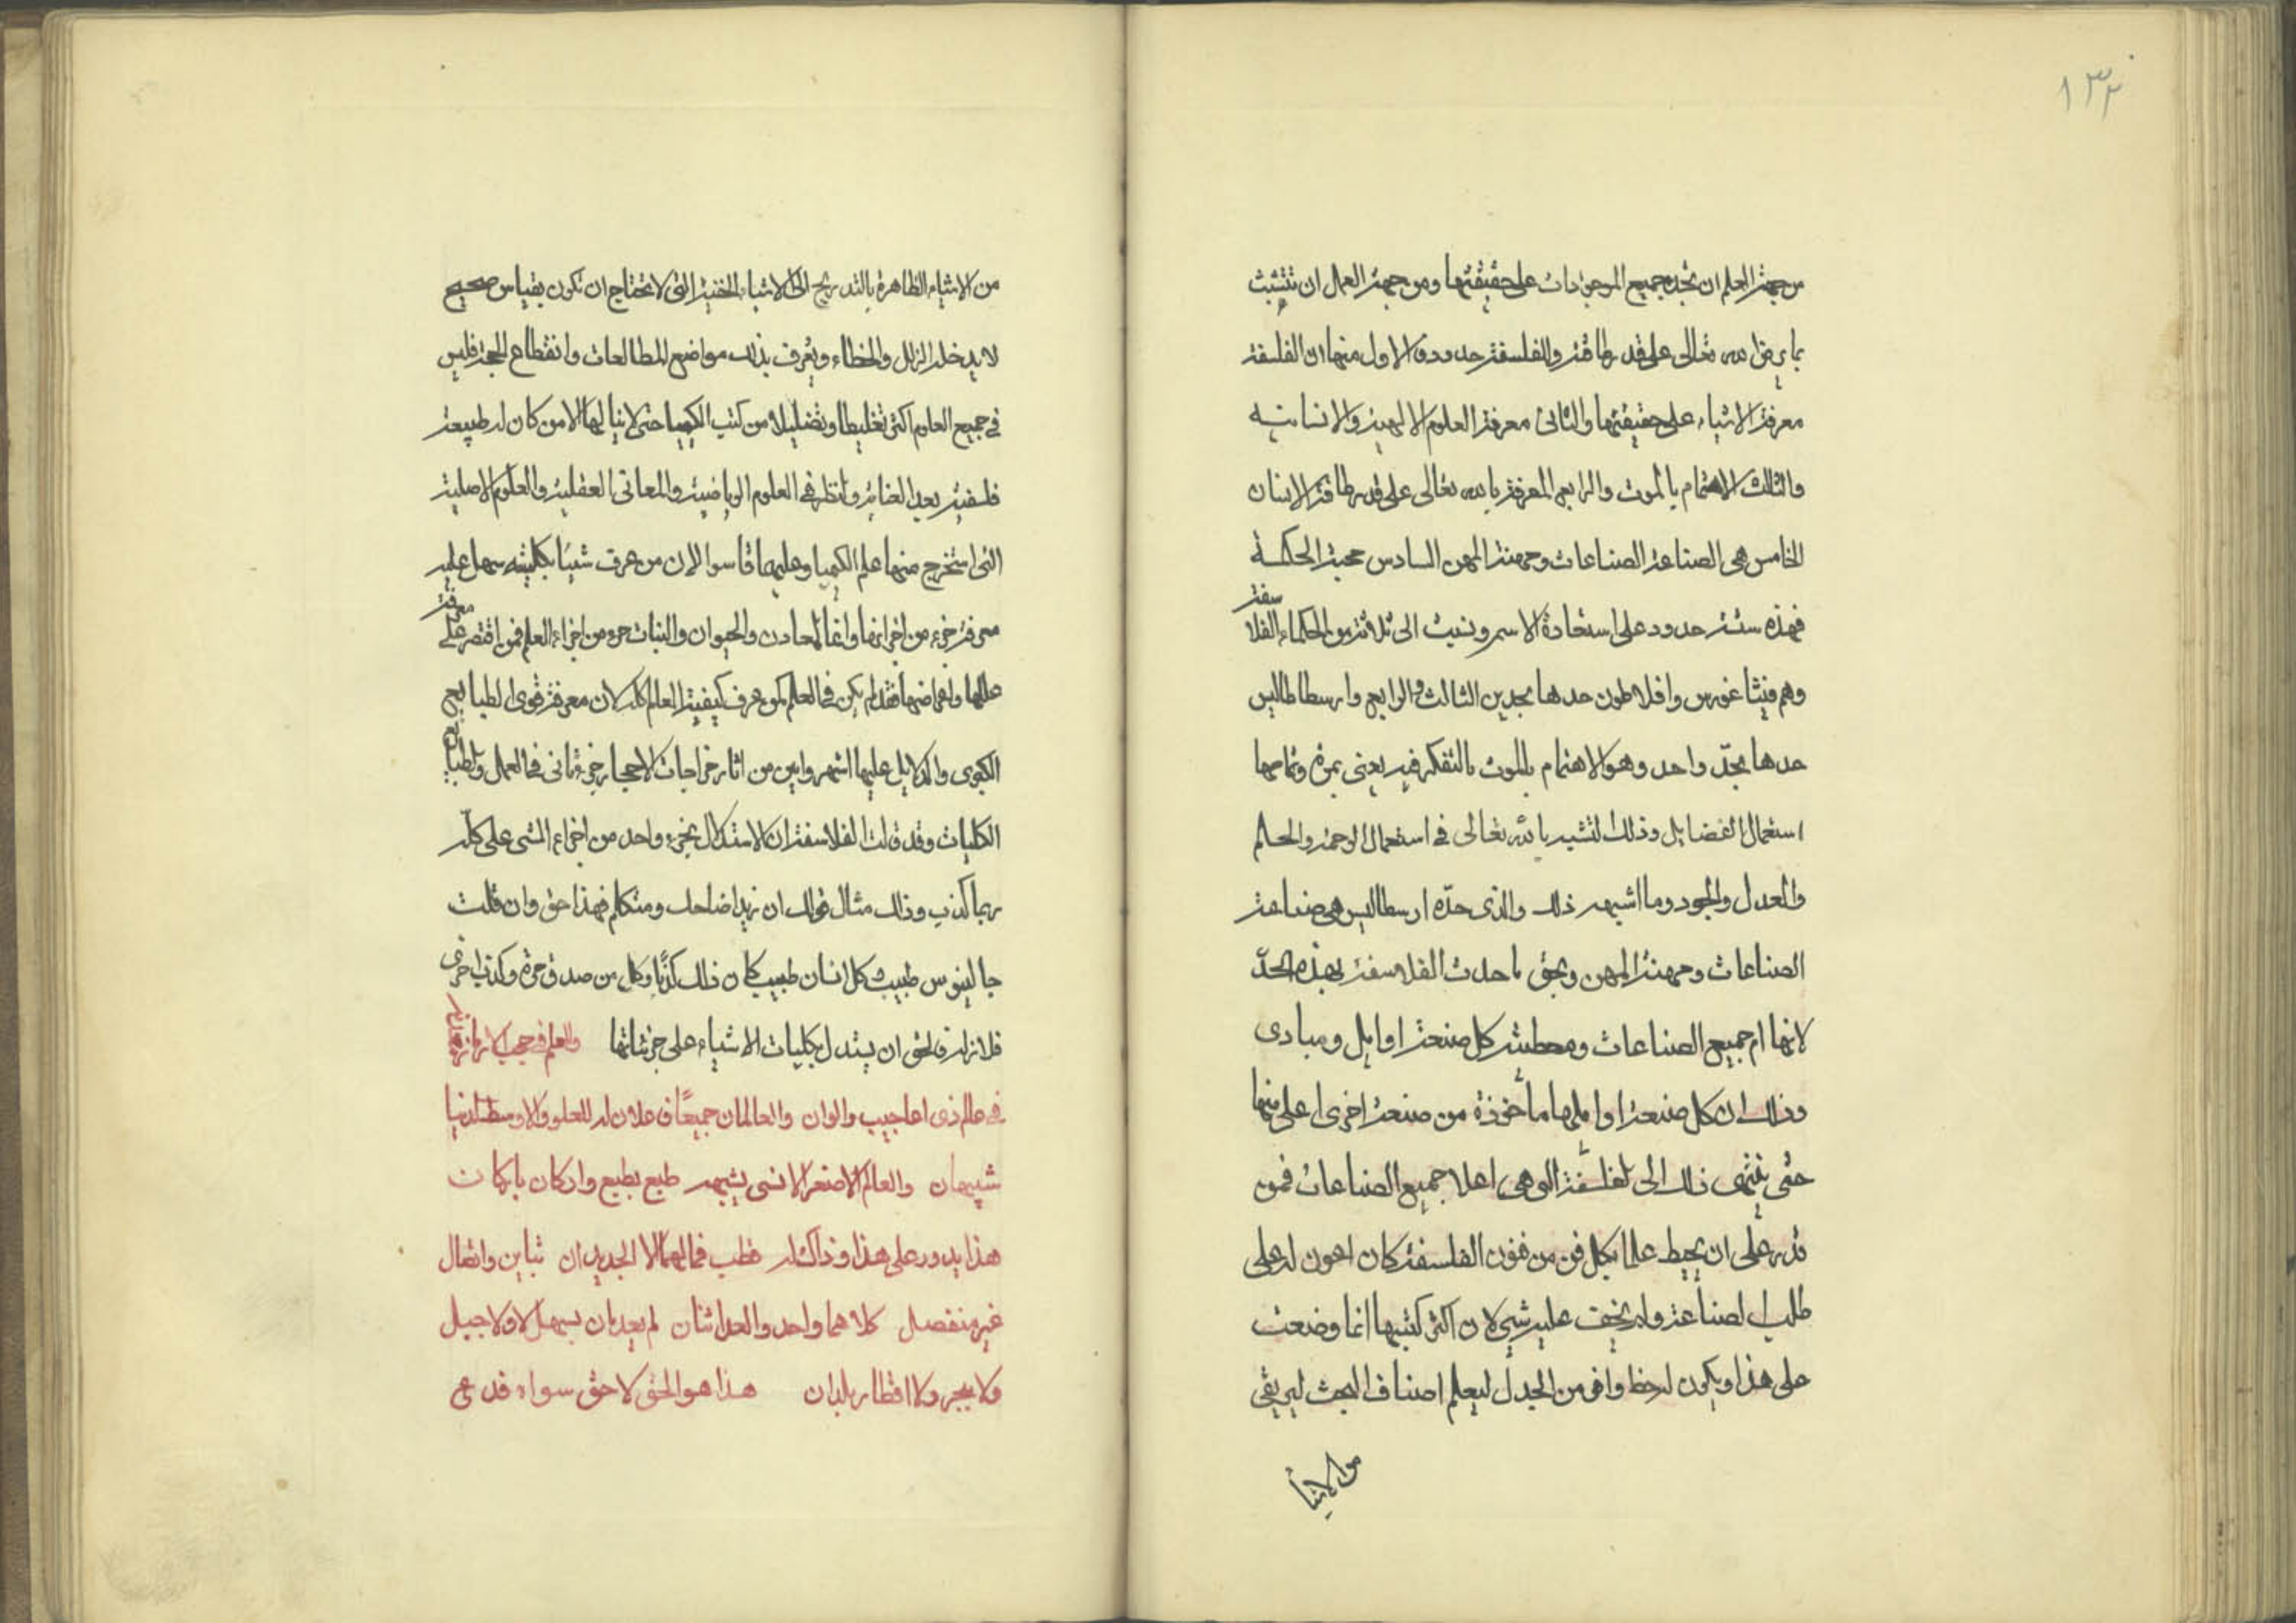 ١٣٢
من جهة العلم ان تجد جميع الموجودات على حقيقتها ومن جهة العمل ان تتشبث
بما يرضى الله تعالى على قدر طاقته وللفلسفة حدود فالاول منها ان الفلسفة
معرفة الاشياء على حقيقتها والثانى معرفة العلوم الالهية والانسانيه
والثالث الاهتمام بالموت والرابع المعرفة بالله تعالى على قدر طاقة الانسان
الخامس هى الصناعة الصناعات ومهنة المهن السادس محبة الحكمة
فهذه ستة حدود على استعادة الاسم ونسبت الى ثلاثة من الحكماء الفلا
سفة
وهم فيثاغورس وافلاطون حدها بحدين الثالث والرابع وارسطاطاليس
حدها بحدّ واحد وهو الاهتمام بالموت بالتفكر فيه يعنى بمرة وتمامها
استعمال الفضايل وذلك لتشبه بالله تعالى فى استعمال الرحمة والحلم
والعدل والجود وما اشبهه ذلك والذى حدّه ارسطاليس هى صناعة
الصناعات ومهنة المهن وبحق ما حدت الفلاسفة بهذه الحدّ
لانها ام جميع الصناعات ومعطية كل صنعة اوايل ومبادى
وذلك ان كل صنعة اوايلها مأخوذة من صنعة اخرى اعلى منها
حتى ينتهى ذلك الى الفلسفة التى هى اعلا جميع الصناعات فمن
قدر على ان يحيط علما بكل فن من فنون الفلسفة كان اعون له على
طلب الصناعة ولم يخف عليه شى لان اكثر كتبها انما وضعت
على هذا ويكون له حظ وافر من الجدل ليعلم اصناف البحث ليرتقى
من الاشيا
من الاشياء الظاهرة بالتدريج الى الاشياء الخفية التى لا تحتاج ان تكون بقياس صحيح
لا يدخله الزلل والخطاء ويعرف بذلك مواضع المطالعات وانقطاع الحجة فليس
فى جميع العلوم اكثر تغليطا وتضليلا من كتب الكيميا حتى لا ينالها الا من كان له طبيعة
فلسفية بعد العناية والنظر فى العلوم الرياضية والمعانى العقلية والعلوم الاصلية
التى استخرج منها علم الكيميا وعليها قاسوا لان من عرف شيئا بكليته سهل عليه
معرفة جزء من اجزائها وانما المعادن والحيوان والنبات جزء من اجزاء العالم فمن اقتصر على
معرفة
عللها واعراضها فقد لم يكن فى العلم كمن عرف كيفية العالم كله لان معرفة قوى الطبايع
الكبرى والدلايل عليها اشهر وابين من اثار خراجات الاحجار جزء ثانى فى العمل والطبا
يع
الكليات وقد قالت الفلاسفة ان الاستدلال بجزء واحد من اجزاء الشى على كله
ربما كذب وذلك مثال قولك ان زيدا ضاحك ومتكلم فهذا حق وان قلت
جالينوس طبيب كل انسان طبيب كان ذلك كذبا وكل من صدق مرة وكذب اخرى
فلا نزاله فالحق ان يستدل بكليات الاشياء على جزئياتها والعلم فى حجب الارمازه
فى عالم ذى اعاجيب والوان والعالمان جميعًا فى علاء له للعلو والاوسط الدنيا
شبيهان والعالم الاصغر الانسى يشبهه طبع بطبع واركان باركان
هذا يدور على هذا وذاك له قطب فما لهما الا الجديدان تباين واتصال
غير منفصل كلاهما واحد والعد اثنان لم يعديان بسهل لا ولا جبل
ولا ببحر ولا اقطار بلدان هذا هو الحق لا حق سواه فدعى